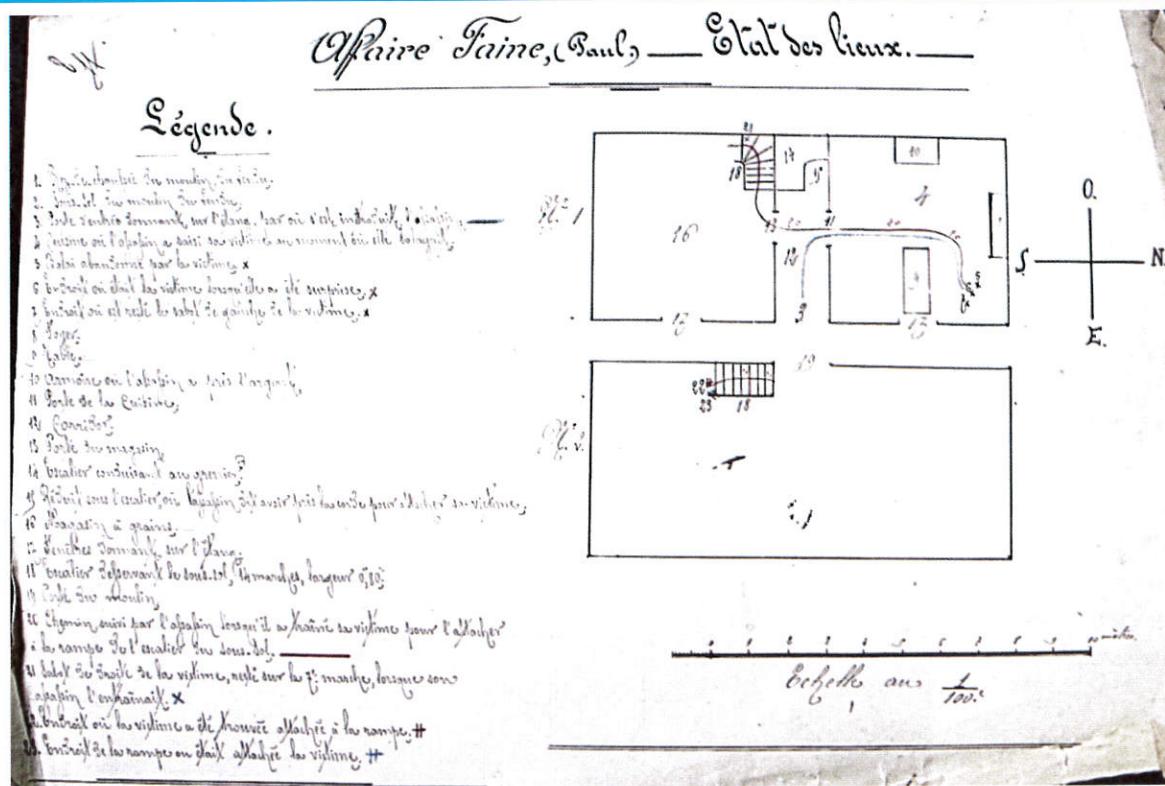 Affaire Faine, (Paul) — Etat des lieux. —
Légende.
1 Rez de chaussée du moulin
2 Sous-sol du moulin
3 Porte d'entrée donnant sur l'étang, par où s'est introduit l'assassin,
4 Cuisine où l'assassin a saisi sa victime au moment où elle balayait,
5 Balai abandonné par la victime. x
6 Endroit où était la victime lorsqu'elle a été surprise. x
7 Endroit où est resté le sabot de gauche de la victime. x
8 Foyer.
9 Table.
10 Armoire où l'assassin a pris l'argent.
11 Porte de la Cuisine,
12 Corridor.
13 Porte du magasin
14 Escalier conduisant au grenier.
15 Réduit sous l'escalier, où l'assassin doit avoir pris la corde pour attacher sa victime,
16 Magasin à grains.
17 Fenêtres donnant sur l'étang.
18 Escalier desservant le sous-sol, 14 marches, largeur 0,80
19 Porte du moulin
20 Chemin suivi par l'assassin lorsqu'il a traîné sa victime pour l'attacher
à la rampe de l'escalier du sous-sol.
21 Sabot de droite de la victime, resté sur la 7e marche, lorsque son
assassin l'entraînait x
22 Endroit où la victime a été trouvée attachée à la rampe. #
23 Endroit de la rampe où était attachée la victime. #
No 1
21
18
14
15
10
4
16
13
20
11
20
12
9
3
17
17
O.
S
N.
E.
No 2.
19
22
23
18
0 1 2 3 4 5 6 7 8 9 10 mètres
Echelle au 1/100e